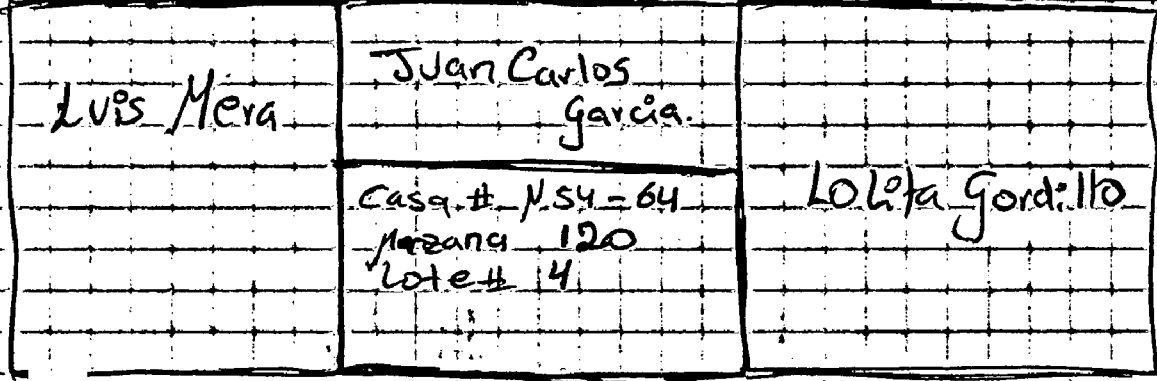 Luis Mera
Juan Carlos
Garcia.
Casa # N54-64
Manzana 120
Lote # 4
Lolita Gordillo